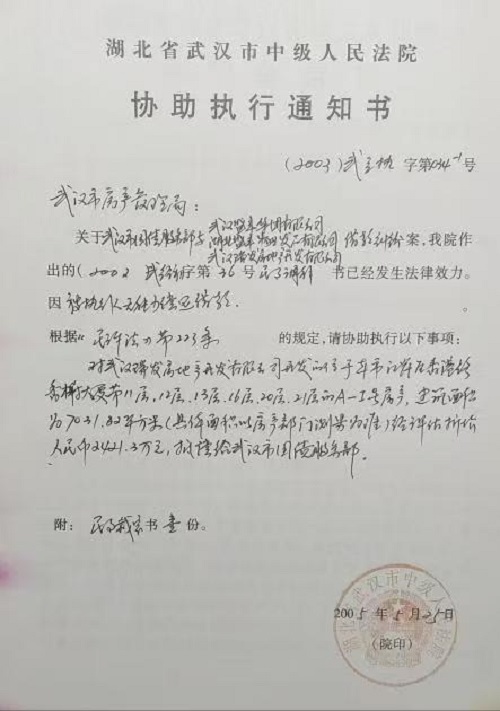 湖北省武汉市中级人民法院
协助执行通知书
(2003)武立执 字第 号
武汉市房产管理局:
武汉 集团有限公司
关于武汉市国债服务部与 发展有限公司 借款纠纷案,我院作
武汉 发房地产开发有限公司
出的(2002 武 字第 36 号民事调解 书已经发生法律效力。
因 被执行人无能力偿还借款 。
根据《民诉法》第223条 的规定,请协助执行以下事项:
对武汉 发房地产开发有限公司开发的位于本市江岸区香港路
香榭大厦第11层,12层,13层,16层,20层,21层的A— 号房产,建筑面积
为7031.82平方米(具体面积以房产部门测易为准)经评估折价
人民币2421.3万元,抵债给武汉市国债服务部。
附: 民事裁定书 壹 份。
2005年5月25日
(院印)